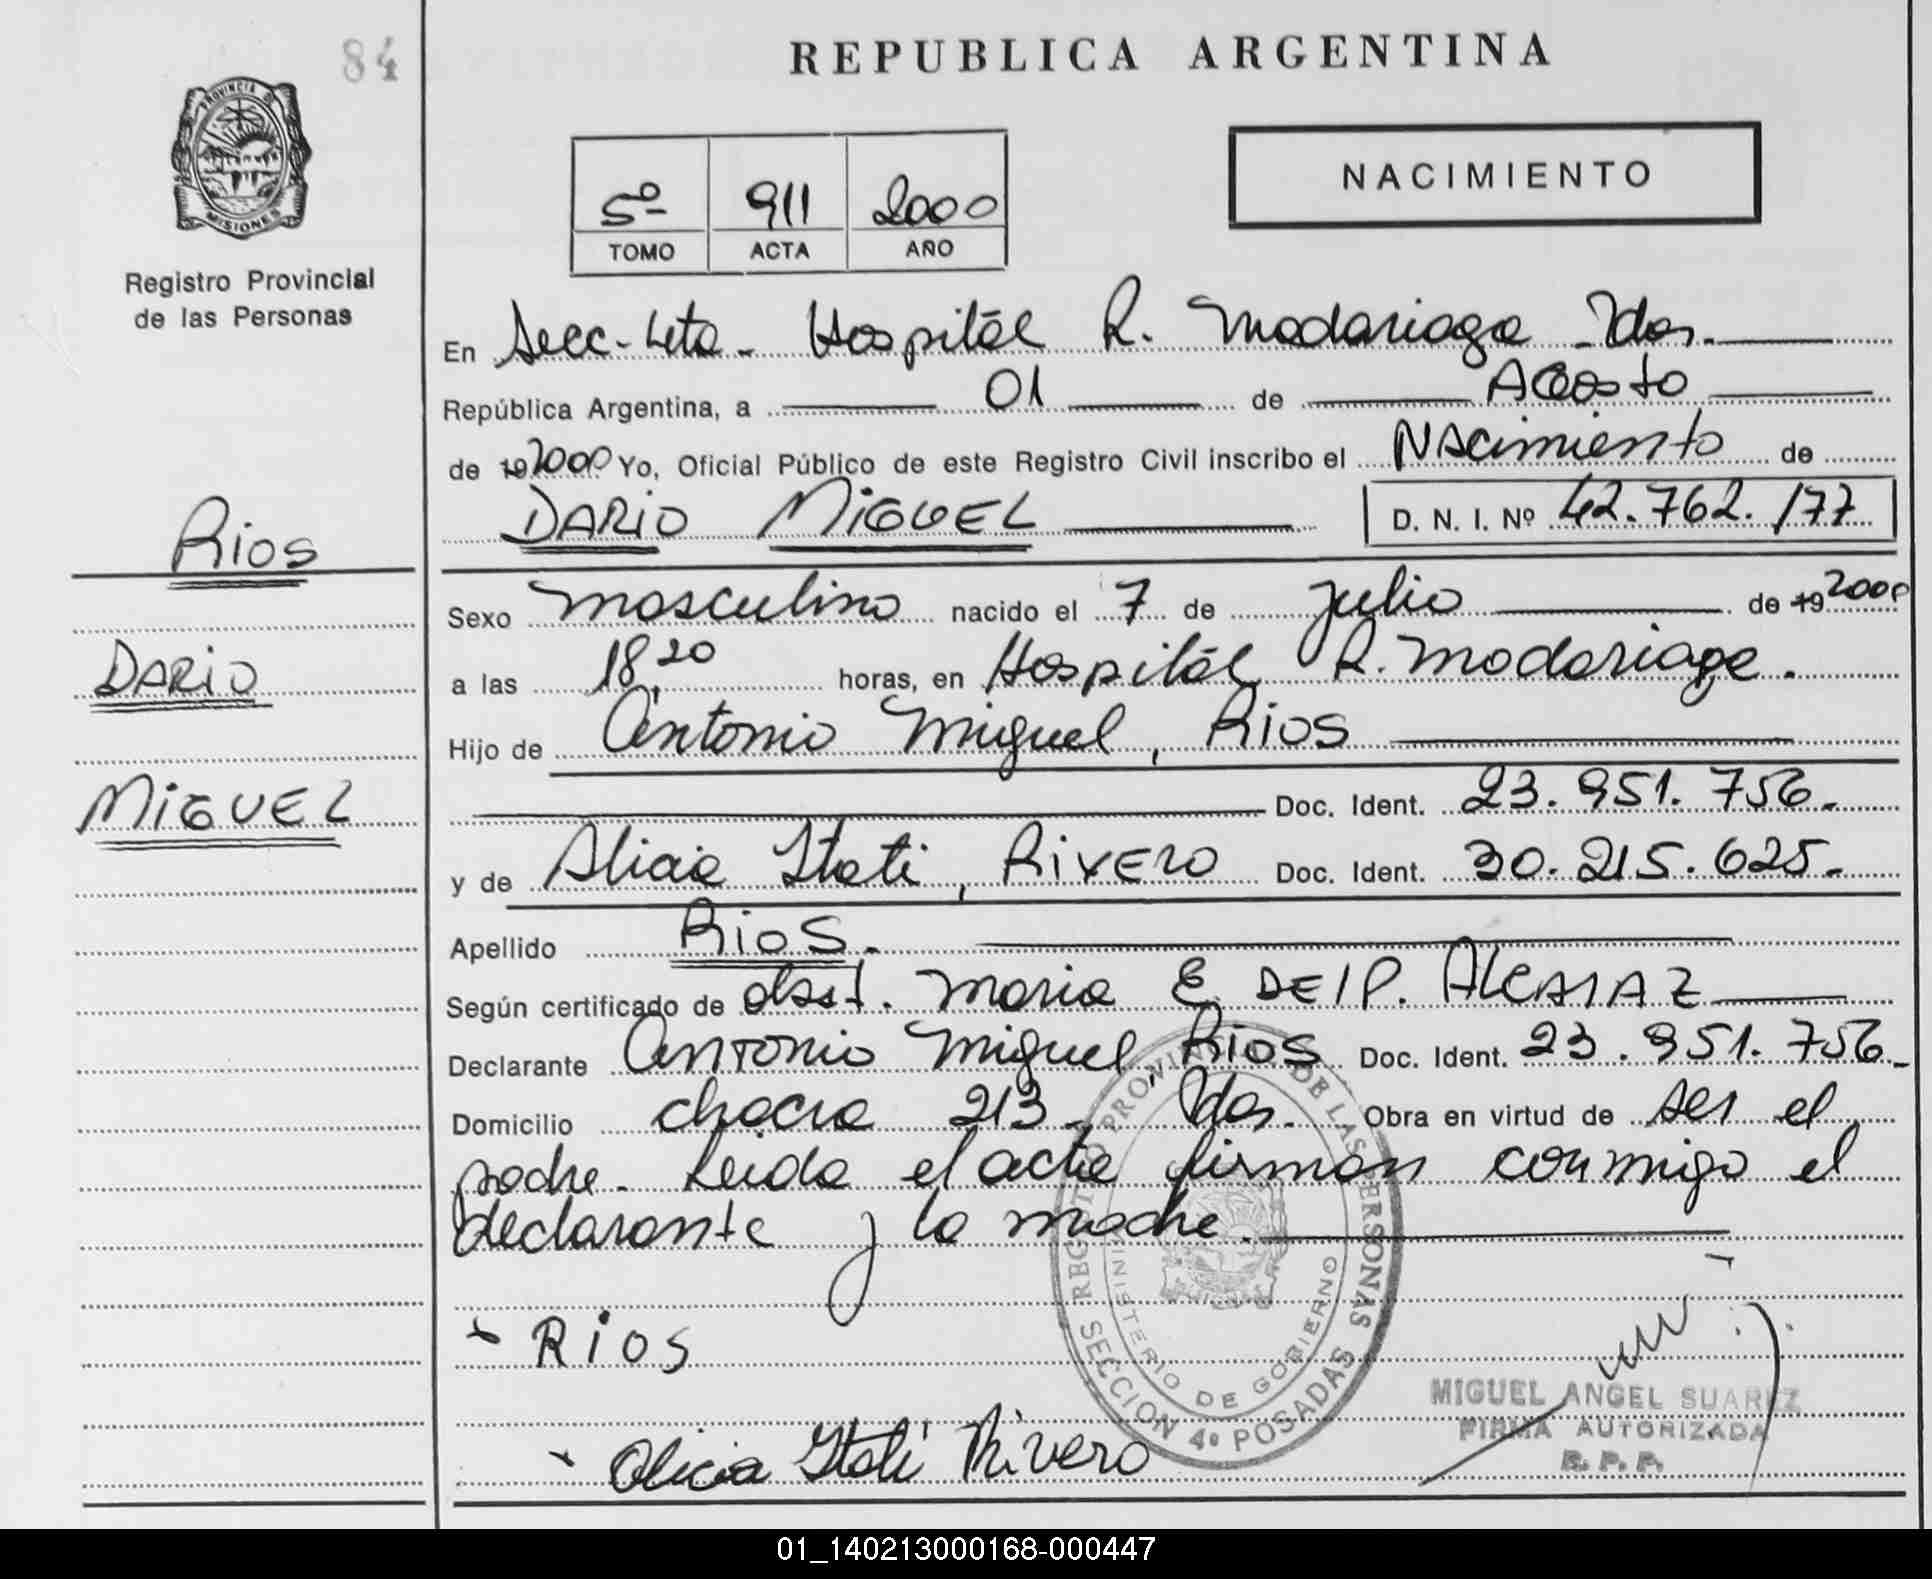 84
REPUBLICA ARGENTINA
PROVINCIA DE MISIONES
Registro Provincial
de las Personas
5º 911 2000
TOMO ACTA AÑO
NACIMIENTO
En Secc. 4ta. Hospitál R. Madariaga Pdas.
República Argentina, a 01 de Agosto
de 19 2000 Yo, Oficial Público de este Registro Civil inscribo el Nacimiento de
DARIO MIGUEL D. N. I. Nº 42.762.177
Rios
Sexo masculino nacido el 7 de Julio de 19 2000
DARIO
a las 18,20 horas, en Hospitál R. Madariaga.
Hijo de Antonio Miguel, Rios
MIGUEL
Doc. Ident. 23.951.756.
y de Alicia Itati, Rivero Doc. Ident. 30.215.625.
Apellido Rios.
Según certificado de obst. Maria E. DEIP. Alcaraz
Declarante Antonio Miguel, Rios Doc. Ident. 23.951.756.
Domicilio chacra 213. Pdas. Obra en virtud de ser el
padre. Leida el acta firman conmigo el
declarante y la madre.
REGISTRO PROVINCIAL DE LAS PERSONAS
MINISTERIO DE GOBIERNO
SECCION 4º POSADAS
Rios
Alicia Itati Rivero
MIGUEL ANGEL SUAREZ
FIRMA AUTORIZADA
R. P. P.
01_140213000168-000447